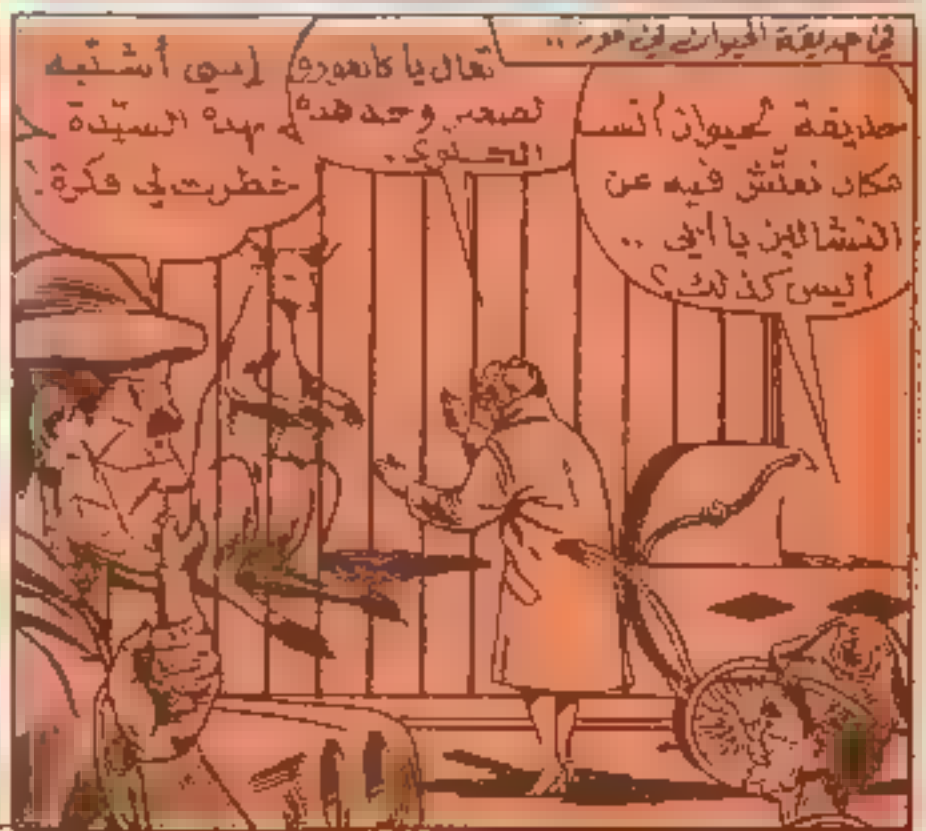 في حديقة الحيوان في
حديقة الحيوان أنسب
مكان نفتش فيه عن
النشالين يا أبي ..
أليس كذلك؟
تعال يا كانغورو
وخذ هذه
الحلوى.
إسمي أشتبه
بهذه السيّدة
خطرت لي فكرة!